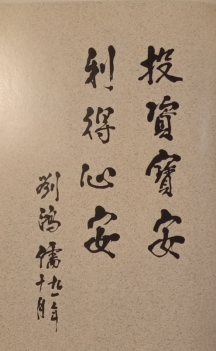 投資寶安
利得心安
劉鴻儒
九一年
十月